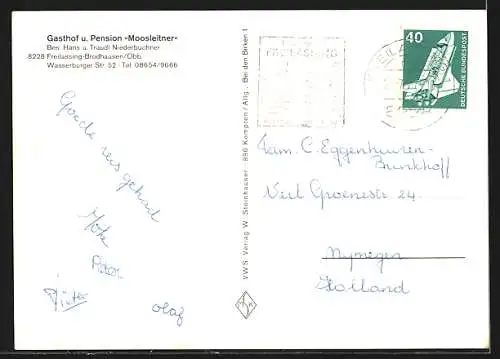 Gasthof u. Pension -Moosleitner-
Bes. Hans u. Traudl Niederbuchner
8228 Freilassing-Brodhausen/Obb.
Wasserburger Str. 52 Tel 08654/9666
Goede reis gehad
Peter
olaf
VWS Verlag W. Steinhauser · 896 Kempten / Allg., Bei den Birken 1
40
DEUTSCHE BUNDESPOST
Fam. C. Eggenhuizen-
Bunkhoff
Nerl Groenestr 24
Nymegen
Holland